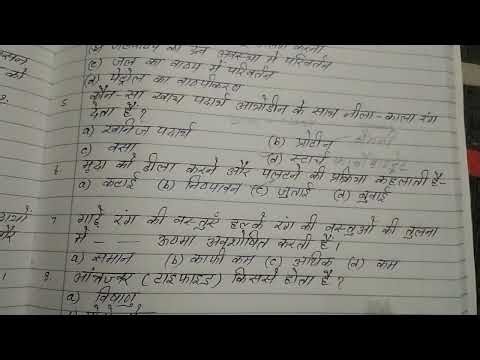 (c) जल का वाष्प में परिवर्तन
(d) पेट्रोल का वाष्पीकरण
5. कौन-सा खाद्य पदार्थ आयोडीन के साथ नीला-काला रंग
देता है?
a) खनिज पदार्थ (b) प्रोटीन
c) वसा (d) स्टार्च
6. मृदा को ढीला करने और पलटने की प्रक्रिया कहलाती है-
a) कटाई (b) निष्पावन (c) जुताई (d) बुवाई
7. गाढ़े रंग की वस्तुएँ हल्के रंग की वस्तुओं की तुलना
में - - - ऊष्मा अवशोषित करती हैं।
a) समान (b) काफी कम (c) अधिक (d) कम
8. आंत्रज्वर (टाइफाइड) किससे होता है?
a) विषाणु